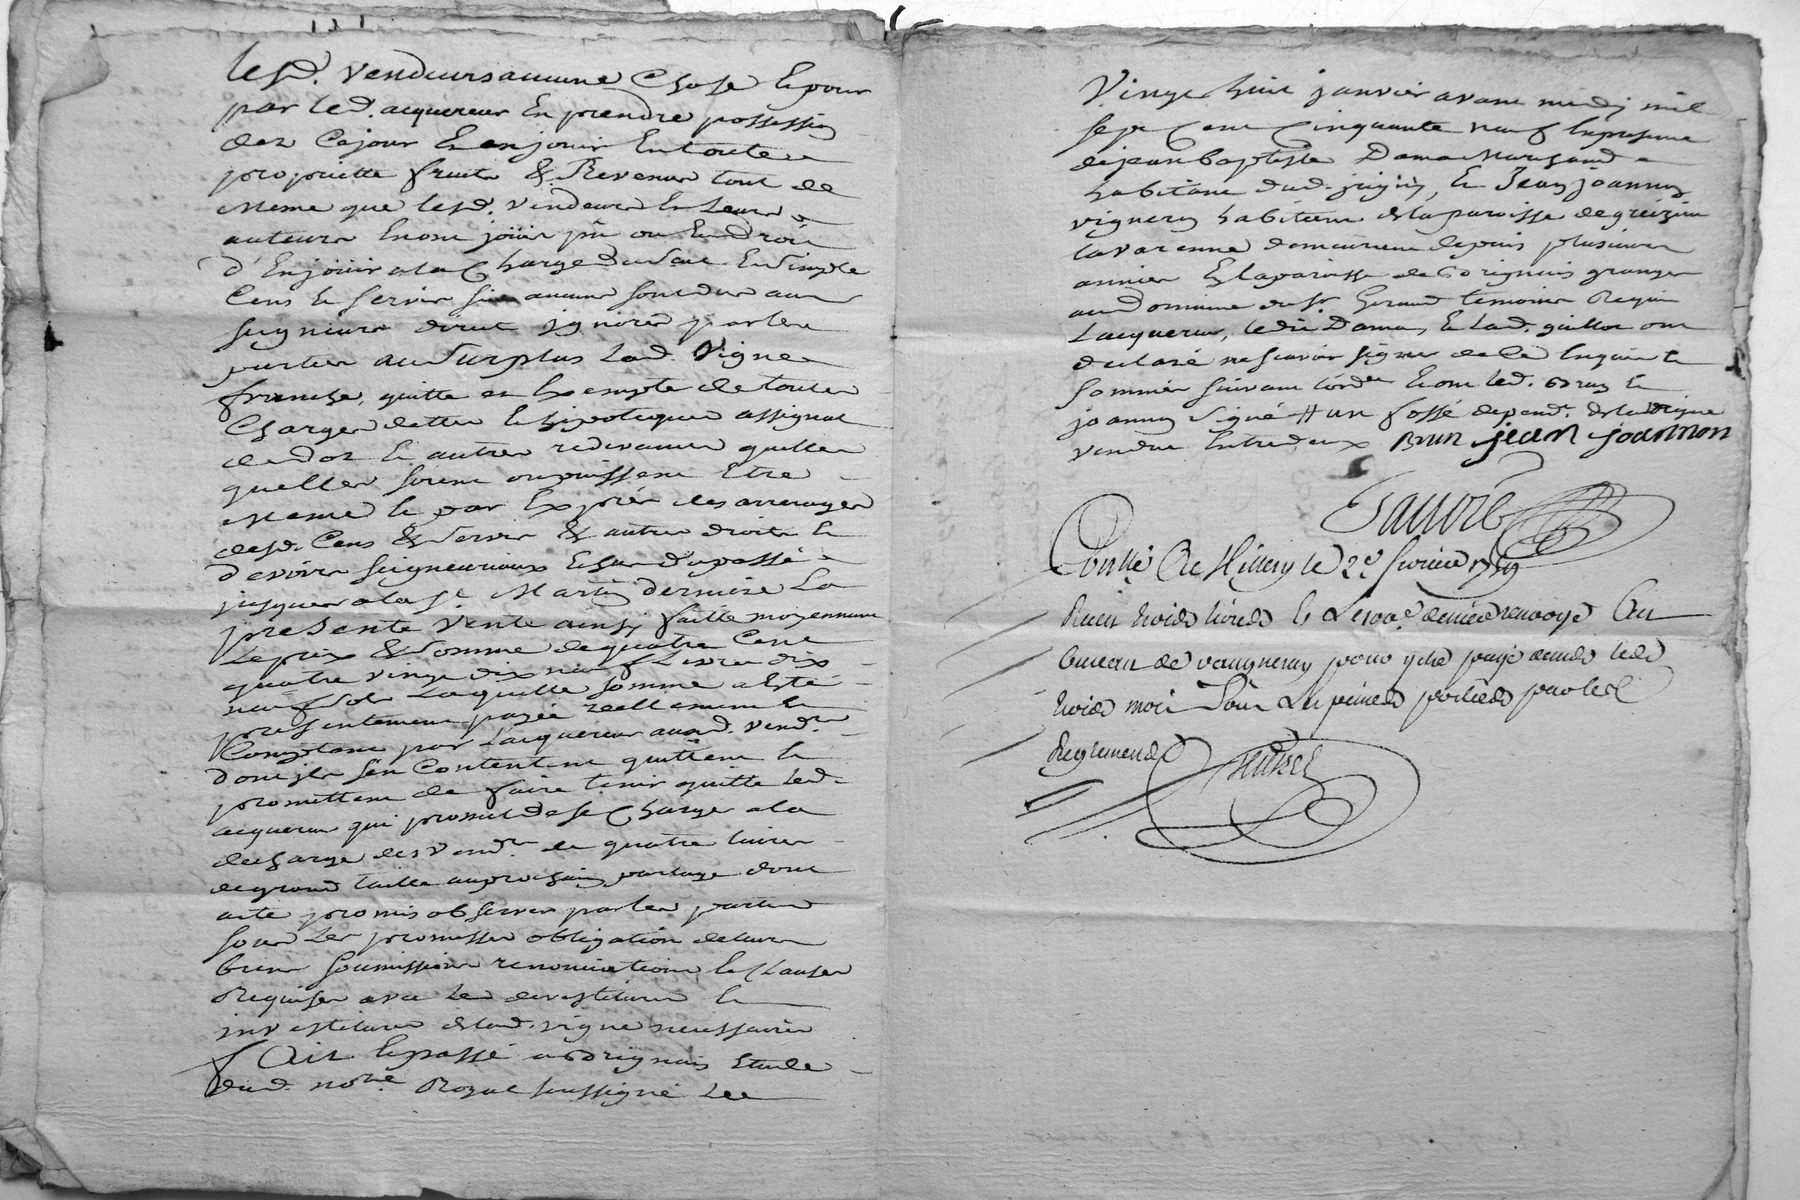 lesd. vendeurs aucune Chose Et pour
par led. acquereur En prendre possession
dez Cejour En enjouir En toute
proprietté fruits & Revenus tout de
meme que lesd. vendeurs Et Leurs
auteurs En ont jöüir pû ou En Droit
d'Enjöüir a la Charge
Cens & Servis aucuns
seigneurs direct ignorés par les
parties au Surplus Lad. Vigne
franche, quitte et Exempte de toutes
Charges dettes Et hipoteques
et autres redevances quelles
quelles soient ou puissent Etre
meme Et par Exprés des arrerages
desd. Cens & Servis & autres droits Et
devoirs seigneuriaux du passé
jusques a la St. Martin derniere La
presente vente ainsi faitte moyennant
Le prix & Somme de quatre Cent
quatre vingt dix neuf Livres dix
neuf sols Laquelle somme a Esté
presentement payée reellement Et
Comptant par Lacquereur auxd. vendrs
dont ils sen Contentent quittent Et
promettent de faire tenir quitte led.
acquereur qui promet de se Charger a la
decharge des vendrs de quatre livres
de grand taille au prochain partage dont
acte promis observer par les parties
sous Les promesses obligation de leurs
biens soumissions renonciations Et Clauses
Requises avec Les devestitures Et
investitures de lad. vigne necessaires
fait Et passé a Brignais Etude
dud. nore Royal soussigné Le
Vingt huit janvier avant midy mil
sept Cent Cinquante neuf En presence
de jean baptiste Damas
habitant dud. , Et Jean joannon
vigneron habitant de la paroisse de grézieu
la varenne demeurent depuis plusieurs
années En la paroisse de Brignais granger
au Domaine du Sr. temoins Requis
Lacquereur, ledit Damas, Et Lad. guillot ont
declaré ne scavoir signer de ce Enquis &
sommés suivant Lorde Et ont led. Brun Et
joannon signé # un fossé depend. de la vigne
vendue Entredeux Brun jean joannon
Conllé Le 2e fevrier 1759
Receu trois livres Et
bureau de vaugneray pour y etre payé dans les
trois mois Sous Les peines portées par les
Reglements